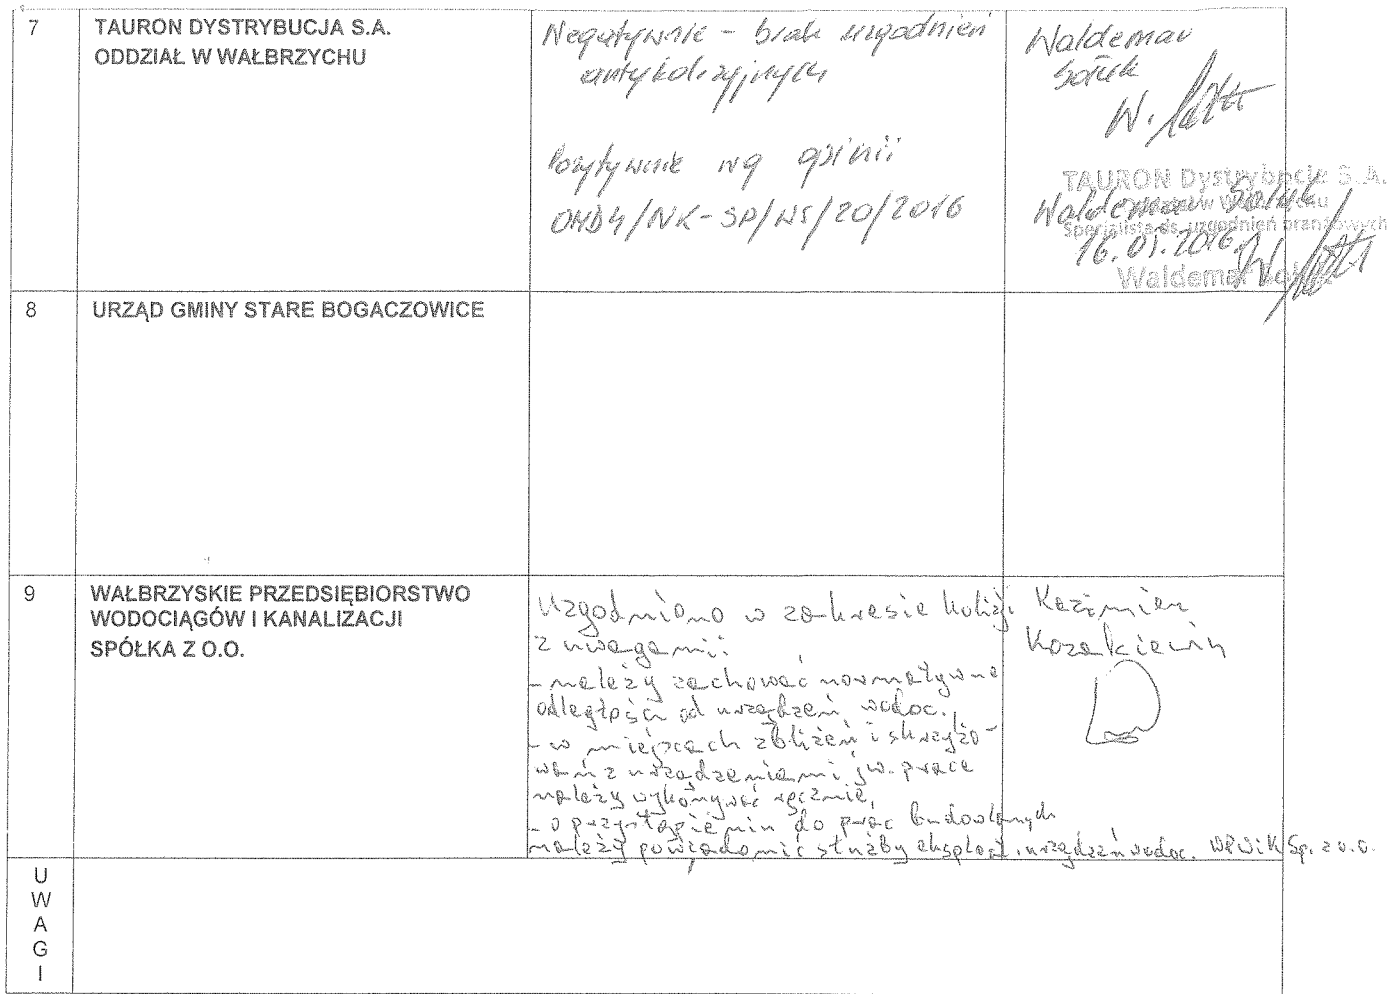 7
TAURON DYSTRYBUCJA S.A.
ODDZIAŁ W WAŁBRZYCHU
Negatywnie - brak uzgodnień
antykolizyjnych
Pozytywnie wg opinii
OMD4/NK-SP/WS/20/2016
Waldemar
W.
TAURON Dystrybucja S.A.
Waldemar
Specjalista ds. uzgodnień branżowych
16.01.2016
Waldemar
8
URZĄD GMINY STARE BOGACZOWICE
9
WAŁBRZYSKIE PRZEDSIĘBIORSTWO
WODOCIĄGÓW I KANALIZACJI
SPÓŁKA Z O.O.
Uzgodniono w zakresie kolizji
z uwagami:
- należy zachować normatywne
odległości od urządzeń wodoc.,
- w miejscach zbliżeń i skrzyżo-
wań z urządzeniami jw. prace
należy wykonywać ręcznie,
- o przystąpieniu do prac budowlanych
należy powiadomić służby eksploat. urządzeń wodoc. WPWiK Sp. z o.o.
Kazimierz
Kozakiewicz
U
W
A
G
I